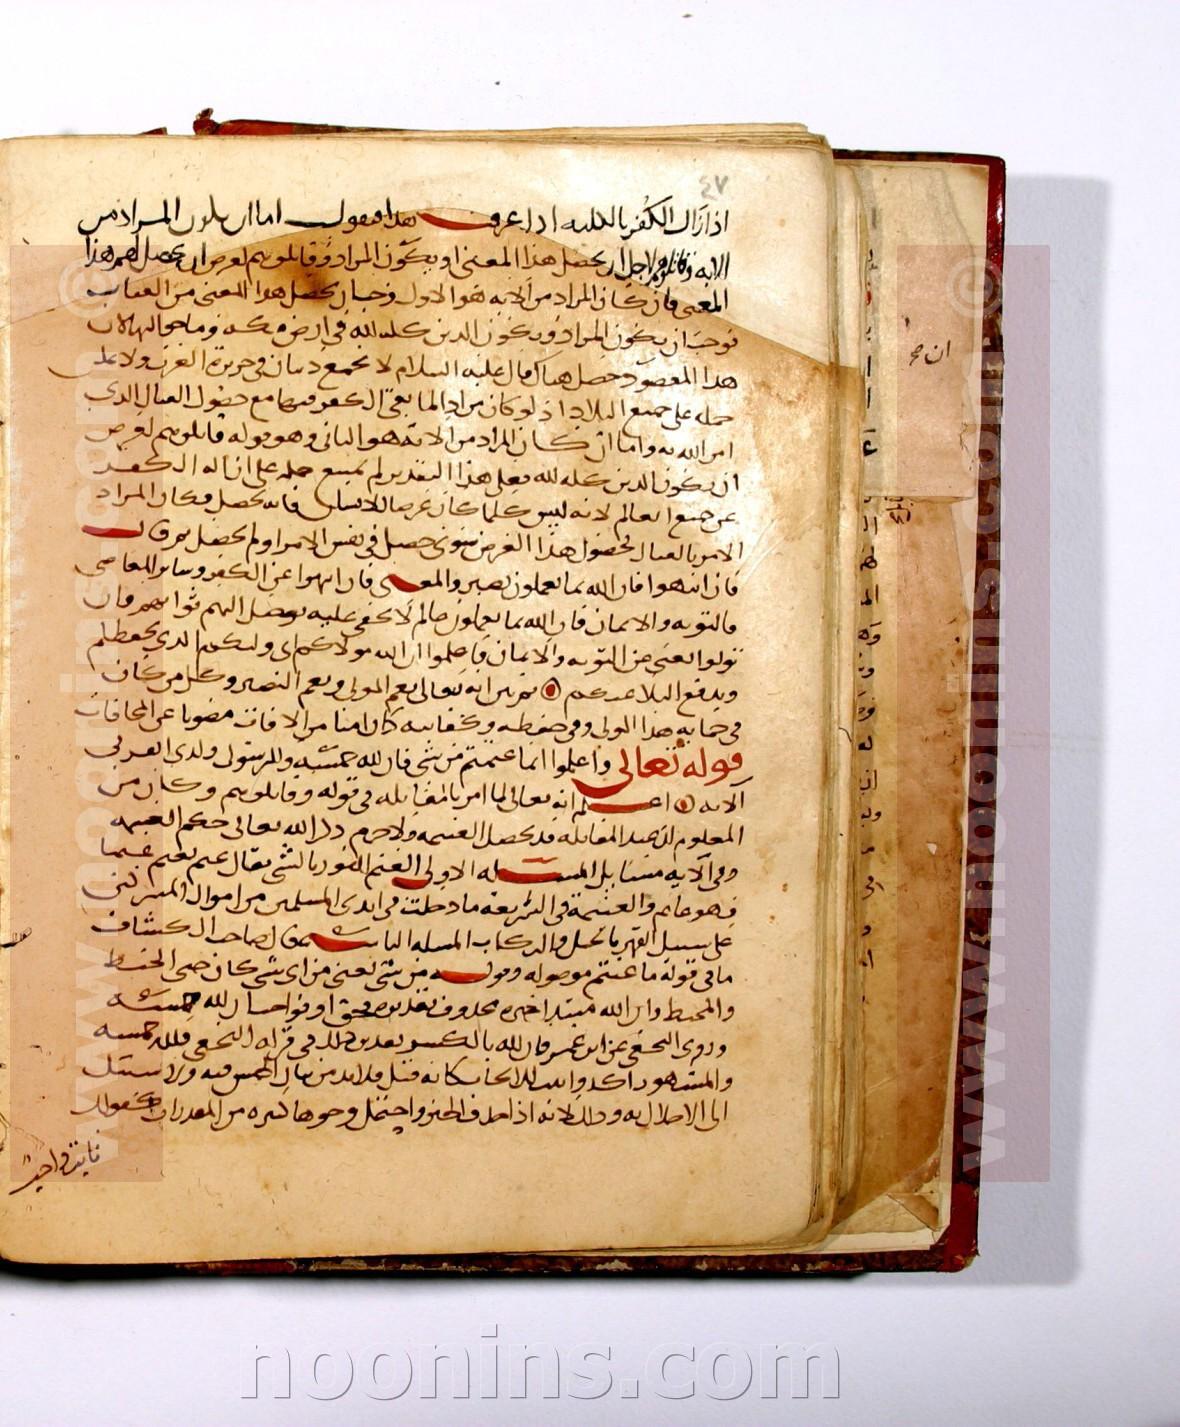 ٤٧
اذا زال الكفر بالكليه اذا عرفت هذا فنقول اما ان يكون المراد من
الايه وقاتلوهم لاجل ان يحصل هذا المعنى او يكون المراد وقاتلوهم لغرض ان يحصل لهم هذا
المعنى فان كان المراد من الايه هو الاول وجب ان يحصل هذا المعنى من القتال
فوجب ان يكون المراد ويكون الدين كله لله في ارض مكه وما حواليها لان
هذا المقصود حصل هناك قال عليه السلام لا يجتمع دينان في جزيرة العرب ولا يمكن
حمله على جميع البلاد اذ لو كان مرادا لما بقي الكفر فيها مع حصول القتال الذي
امر الله به واما ان كان المراد من الاية هو الثاني وهو قوله قاتلوهم لغرض
ان يكون الدين كله لله فعلى هذا التقدير لم يمتنع حمله على ازالة الكفر
عن جميع العالم لانه ليس كلما كان غرضا للانسان فانه يحصل فكان المراد
الامر بالقتال لحصول هذا الغرض سوى حصل في نفس الامر او لم يحصل ثم قال
فان انتهوا فان الله بما يعملون بصير والمعنى فان انتهوا عن الكفر وسائر المعاصي
بالتوبه والايمان فان الله بما يعملون عالم لا يخفى عليه يوصل اليهم ثوابهم وان
تولوا يعني عن التوبه والايمان فاعلموا ان الله مولاكم اي وليكم الذي يحفظكم
ويدفع البلا عنكم ثم بين انه تعالى نعم المولى ونعم النصير وكل من كان
في حمايه هذا المولى وفي حفظه وكفايته كان امنا من الافات مصونا عن المخافات
قوله تعالى واعلموا انما غنمتم من شي فان لله خمسه وللرسول ولذي القربى
الايه اعلم انه تعالى لما امر بالمقاتله في قوله وقاتلوهم وكان من
المعلوم ان عند المقاتله قد تحصل الغنيمه لا جرم ذكر الله تعالى حكم الغنيمه
وفي الايه مسايل المسئله الاولى الغنم الفوز بالشي يقال غنم يغنم غنما
فهو غانم والغنيمة في الشريعه ما دخلت في ايدي المسلمين من اموال المشركين
على سبيل القهر بالخيل والركاب المسله الثانية قال صاحب الكشاف
ما في قوله ما غنمتم موصوله وقوله من شي يعني من اي شي كان حتى الخيط
والمخيط وان الله مبتدا خبره محذوف تقديره فحق او فواجب ان لله خمسه
وروى النخعي عن ابن عمر فان لله بالكسر تقديره وذلك في قراه النخعي فلله خمسه
والمشهور اكد واثبت للايجاب كانه قيل فلا بد من ثبات الخمس فيه ولا سبيل
الى الاخلال به وذلك لانه اذا حذف الخبر واحتمل وجوها كثيره من المقدرات كقولك
ثابت واجب
ان صح